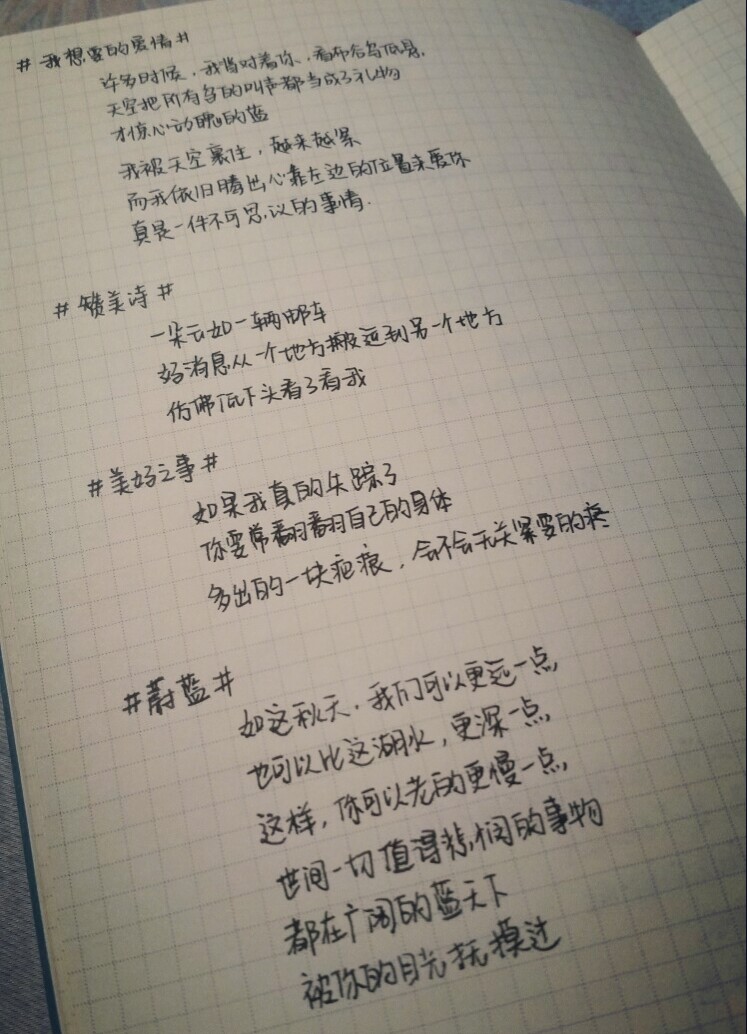 #我想要的爱情#
许多时候，我背对着你、看布谷鸟低悬，
天空把所有鸟的叫声都当成了礼物
才惊心动魄的蓝
我被天空裹住，越来越紧
而我依旧腾出心靠左边的位置来爱你
真是一件不可思议的事情.
#赞美诗#
一朵云如一辆邮车
好消息从一个地方搬运到另一个地方
仿佛低下头看了看我
#美好之事#
如果我真的失踪了
你要常翻翻自己的身体
多出的一块疤痕，会不会无关紧要的疼
#蔚蓝#
如这秋天，我们可以更远一点，
也可以比这湖水，更深一点，
这样，你可以老的更慢一点，
世间一切值得悲悯的事物
都在广阔的蓝天下
被你的目光抚摸过